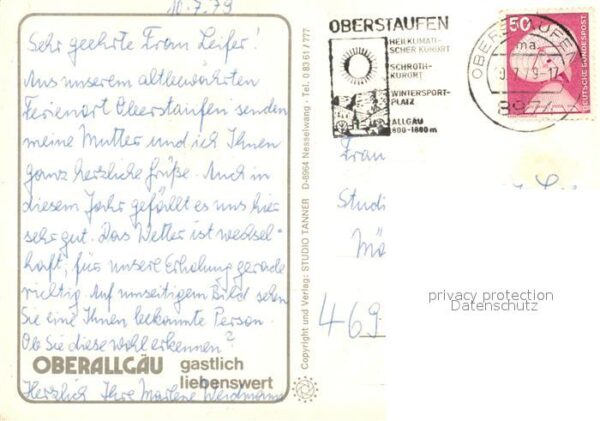 10.7.79
Sehr geehrte Frau Leifer!
Aus unserem altbewährten
Ferienort Oberstaufen senden
meine Mutter und ich Ihnen
ganz herzliche Grüße. Auch in
diesem Jahr gefällt es uns hier
sehr gut. Das Wetter ist wechsel-
haft, für unsere Erholung gerade
richtig. Auf umseitigem Bild sehen
Sie eine Ihnen bekannte Person.
Ob Sie diese wohl erkennen?
OBERALLGÄU gastlich
liebenswert
Herzlich Ihre Marlene Weidmann
Copyright und Verlag: STUDIO TANNER D-8964 Nesselwang · Tel. 0 83 61 / 777
OBERSTAUFEN
HEILKLIMATI-
SCHER KURORT
SCHROTH-
KURORT
WINTERSPORT-
PLATZ
ALLGÄU
800-1800 m
OBERSTAUFEN
ma
8974
50
DEUTSCHE BUNDESPOST
Frau
Studi
Mä
469
privacy protection
Datenschutz